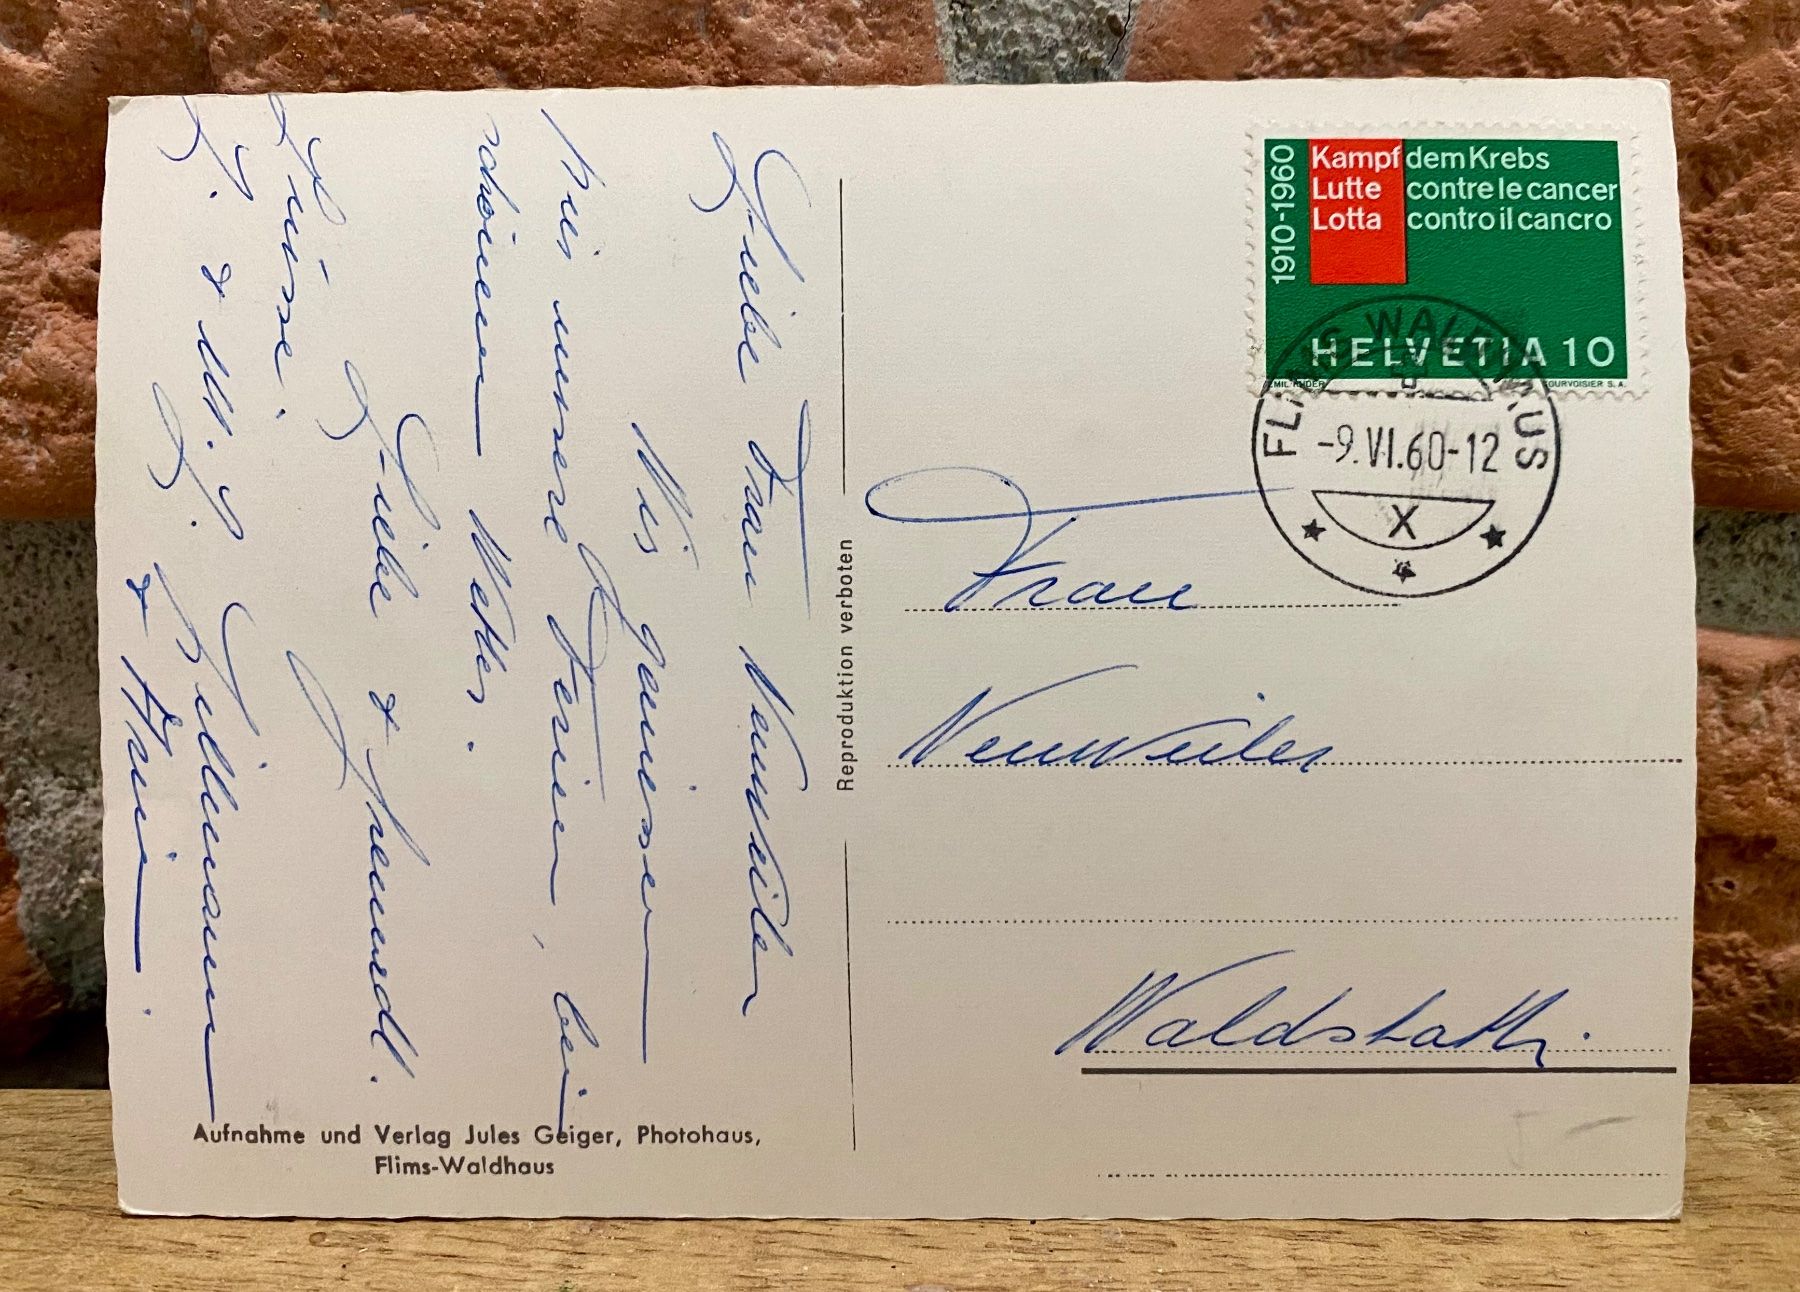 Liebe Frau Neuweiler
Wir geniessen
hier unsere Ferien, bei
schönem Wetter.
Liebe & freundl.
Grüsse.
& Anni.
Aufnahme und Verlag Jules Geiger, Photohaus,
Flims-Waldhaus
Reproduktion verboten
1910-1960
Kampf dem Krebs
Lutte contre le cancer
Lotta contro il cancro
HELVETIA 10
EMIL RUDER COURVOISIER S.A.
FLIMS WALDHAUS
-9.VI.60-12
X
Frau
Neuweiler
Waldstatt.